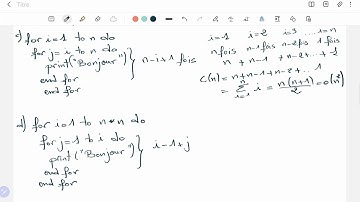 Titre
c) for i=1 to n do
for j=i to n do
print("Bonjour")
end for
end for
} n-i+1 fois
i=1 i=2 i=3 .... i=n
n fois n-1 fois n-2 fois 1 fois
n + n-1 + n-2 + ... + 1
C(n) = n+n-1+n-2+... 1
= ∑ i=1 n i = n(n+1)/2 = O(n²)
d) for i=1 to n*n do
for j=1 to i do
print("Bonjour")
end for
end for
} i-1+j